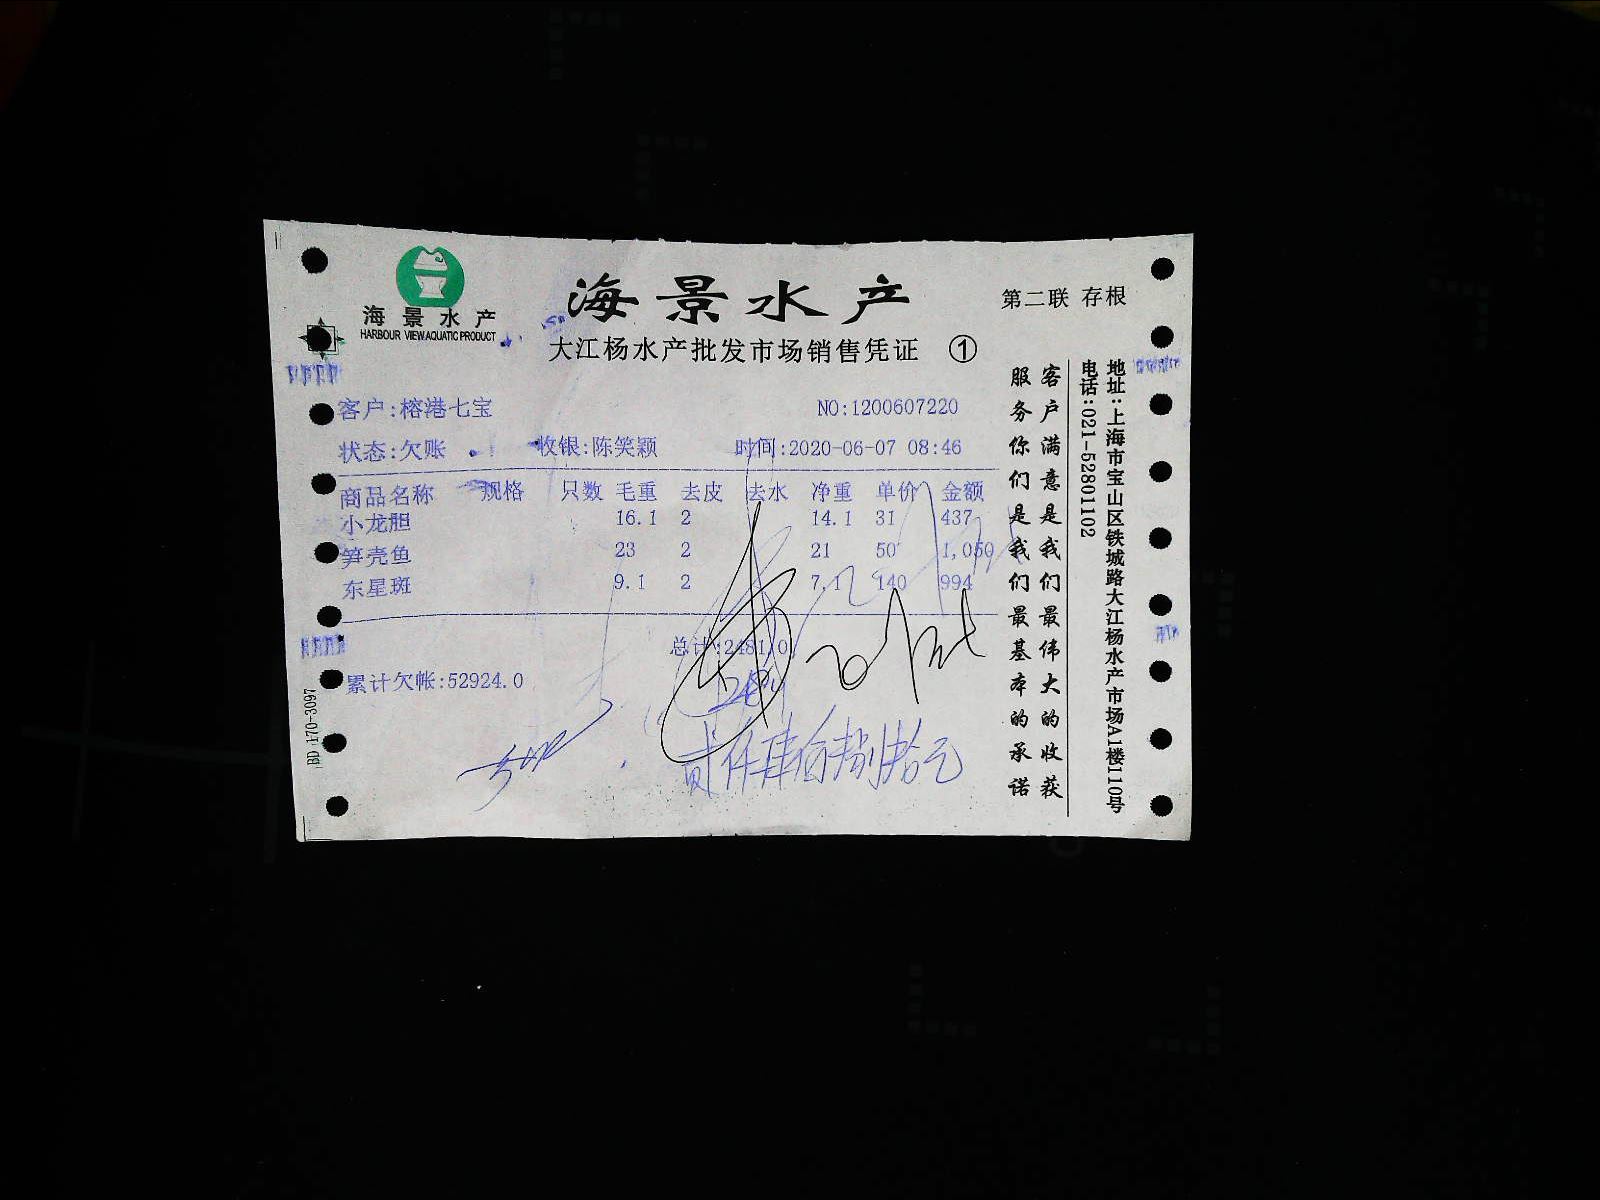 海景水产
HARBOUR VIEW AQUATIC PRODUCT
海景水产
第二联 存根
大江杨水产批发市场销售凭证 ①
客户:榕港七宝 NO:1200607220
状态:欠账 收银:陈笑颖 时间:2020-06-07 08:46
商品名称 规格 只数 毛重 去皮 去水 净重 单价 金额
小龙胆 16.1 2 14.1 31 437
笋壳鱼 23 2 21 50 1,050
东星斑 9.1 2 7.1 140 994
总计:2481.0
累计欠帐:52924.0
2481
贰仟肆佰捌拾元
BD 170-3097
客户满意是我们最伟大的收获
服务你们是我们最基本的承诺
地址:上海市宝山区铁城路大江杨水产市场A1楼110号
电话:021-52801102